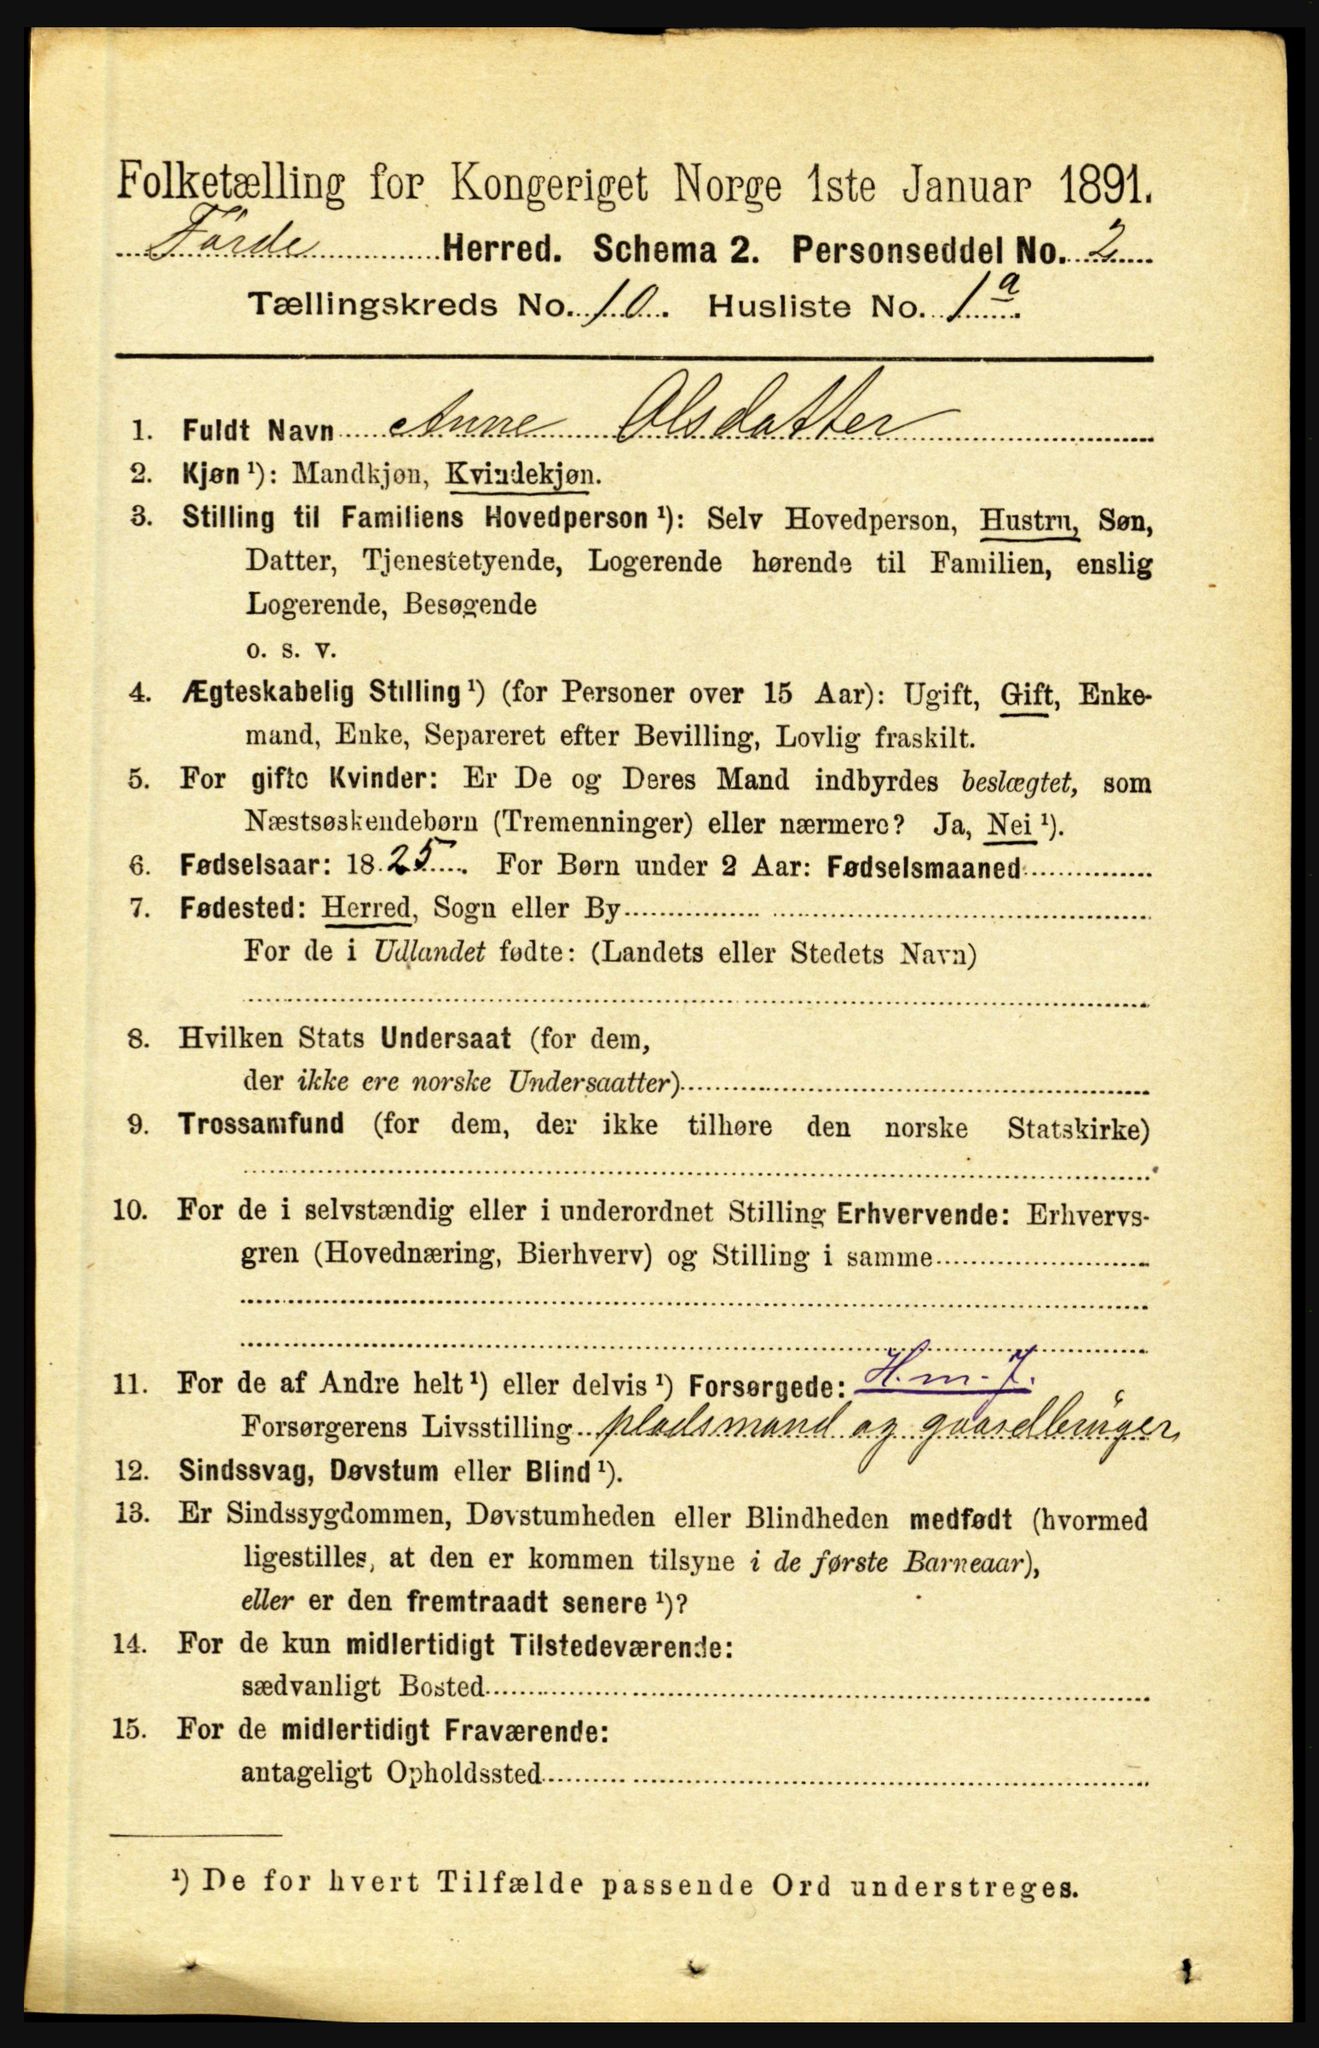 Folketælling for Kongeriget Norge 1ste Januar 1891.
Førde Herred. Schema 2. Personseddel No. 2
Tællingskreds No. 10. Husliste No. 1 a
1. Fuldt Navn Anne Olsdatter
2. Kjøn ¹): Mandkjøn, Kvindekjøn.
3. Stilling til Familiens Hovedperson ¹): Selv Hovedperson, Hustru, Søn,
Datter, Tjenestetyende, Logerende hørende til Familien, enslig
Logerende, Besøgende
o. s. v.
4. Ægteskabelig Stilling ¹) (for Personer over 15 Aar): Ugift, Gift, Enke-
mand, Enke, Separeret efter Bevilling, Lovlig fraskilt.
5. For gifte Kvinder: Er De og Deres Mand indbyrdes beslægtet, som
Næstsøskendebørn (Tremenninger) eller nærmere? Ja, Nei ¹).
6. Fødselsaar: 1825. For Børn under 2 Aar: Fødselsmaaned
7. Fødested: Herred, Sogn eller By
For de i Udlandet fødte: (Landets eller Stedets Navn)
8. Hvilken Stats Undersaat (for dem,
der ikke ere norske Undersaatter)
9. Trossamfund (for dem, der ikke tilhøre den norske Statskirke)
10. For de i selvstændig eller i underordnet Stilling Erhvervende: Erhvervs-
gren (Hovednæring, Bierhverv) og Stilling i samme
11. For de af Andre helt ¹) eller delvis ¹) Forsørgede: H.m-J.
Forsørgerens Livsstilling pladsmand og gaardbruger
12. Sindssvag, Døvstum eller Blind ¹).
13. Er Sindssygdommen, Døvstumheden eller Blindheden medfødt (hvormed
ligestilles, at den er kommen tilsyne i de første Barneaar),
eller er den fremtraadt senere ¹)?
14. For de kun midlertidigt Tilstedeværende:
sædvanligt Bosted
15. For de midlertidigt Fraværende:
antageligt Opholdssted
¹) De for hvert Tilfælde passende Ord understreges.